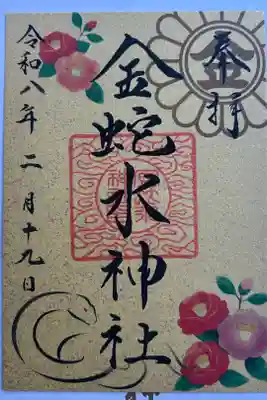 奉拝
金蛇水神社
令和八年二月十九日